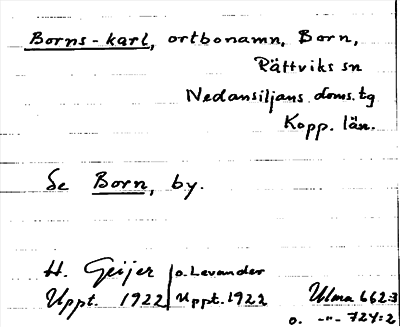 Borns-karl, ortbonamn, Born,
Rättviks sn
Nedansiljans doms. tg
Kopp. län.
Se Born, by.
H. Geijer o. Levander
Uppt. 1922 Uppt. 1922
Ulma 662:3
o. -"- 724:2